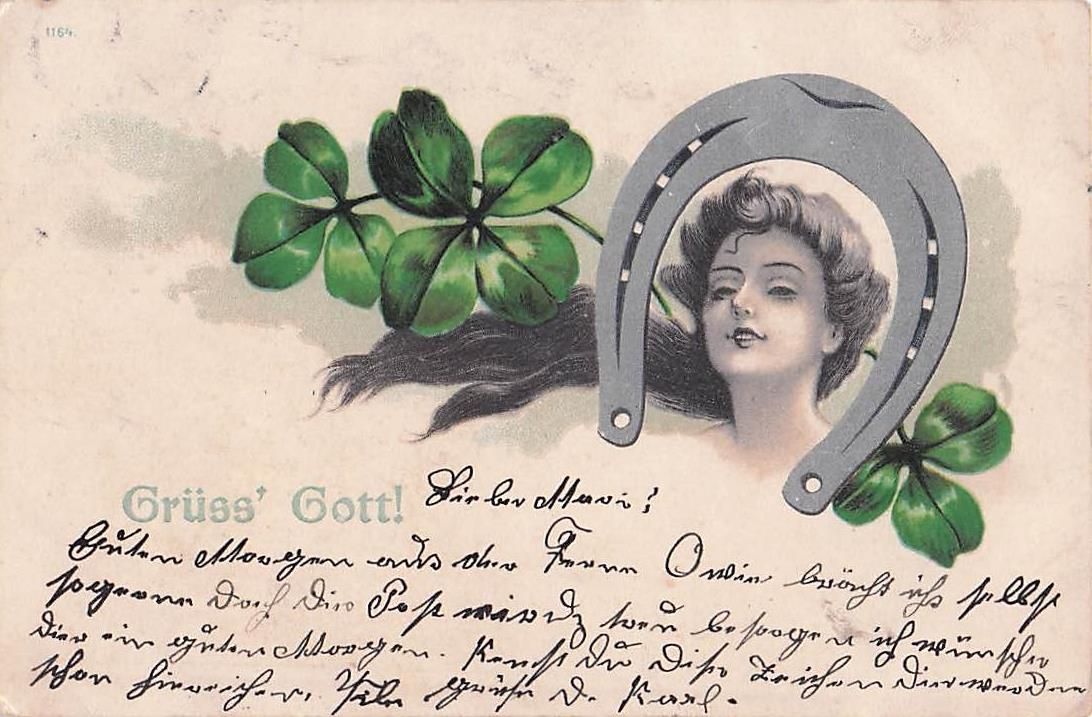 1164.
Grüss' Gott!
Lieber Mari!
Guten Morgen aus der Ferne O wie brächt ichs selbst
so gerne Doch Die Post wird's treu besorgen ich wünsche
Dir ein guten Morgen. Kennst Du Diese Zeichen Die werden
schon hinreichen. Viele grüße D. Karl.